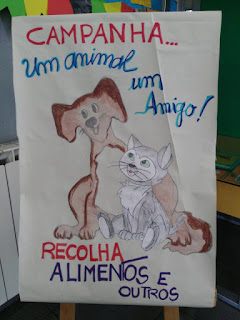 CAMPANHA...
Um animal
um
Amigo!
RECOLHA
ALIMENTOS E
OUTROS